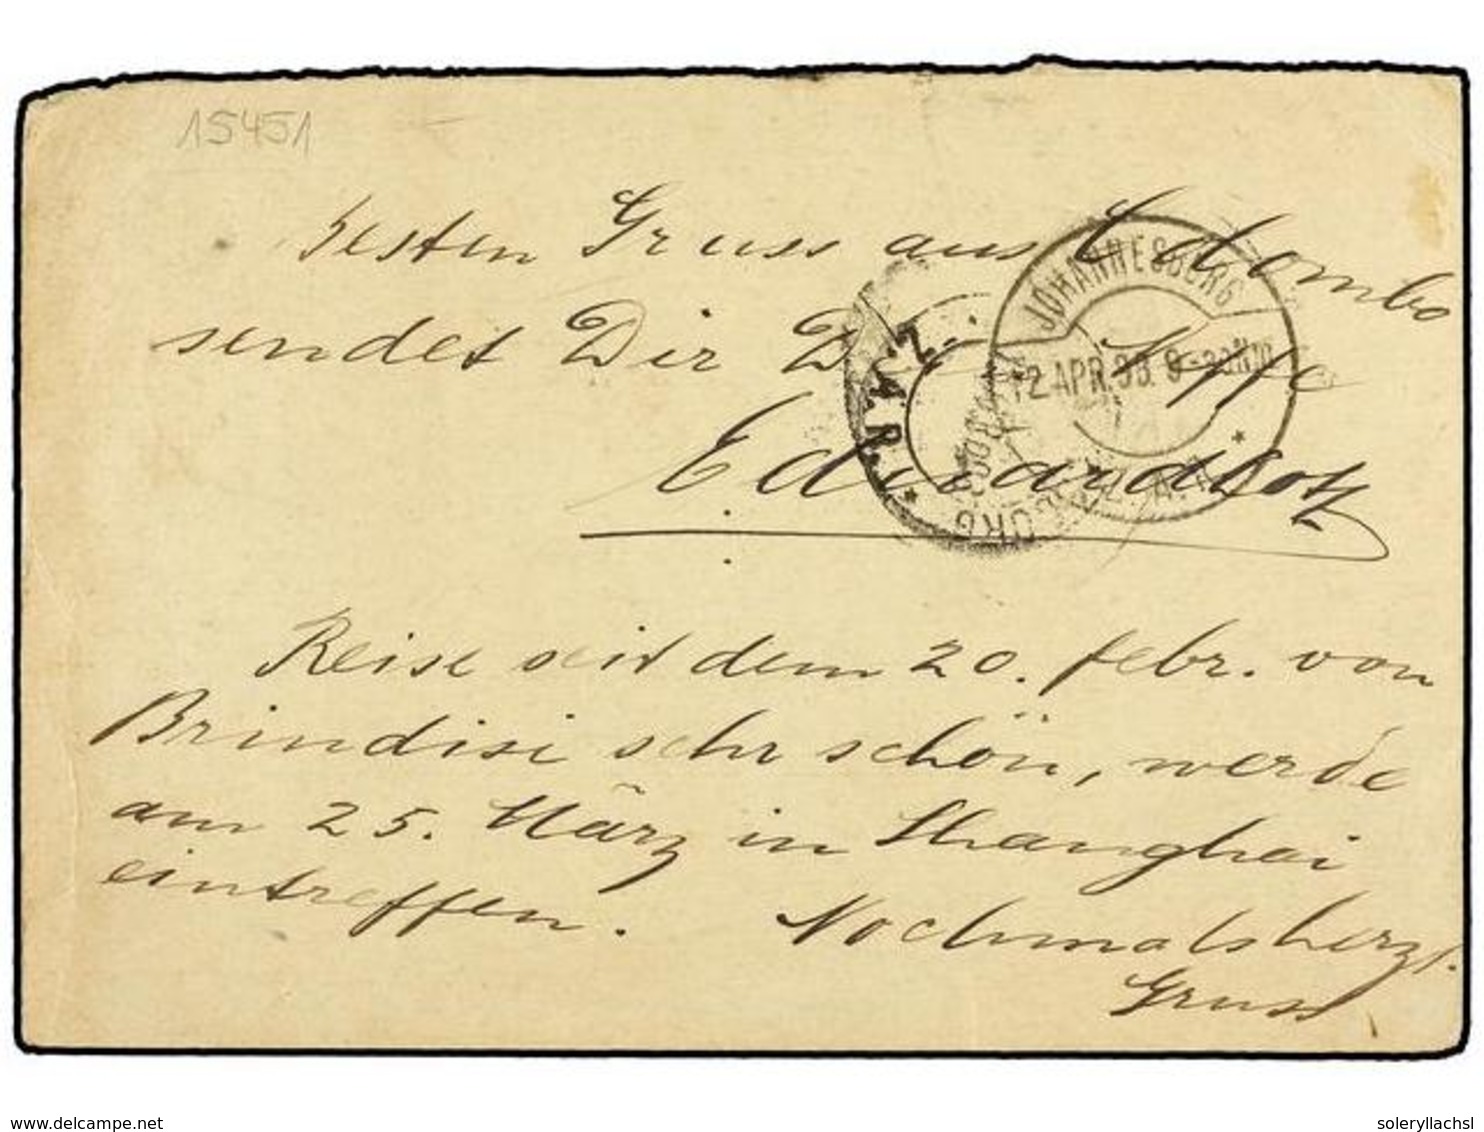 15451
besten Gruss aus Colombo
sendet Dir Dein
Eduard
JOHANNESBURG
12 APR. 9-30
Z.A.R.
Reise seit dem 20. febr. von
Brindisi sehr schön, werde
am 25. März in Shanghai
eintreffen. Nochmals herzl.
Gruss
delcampe.net
soleryllachsl